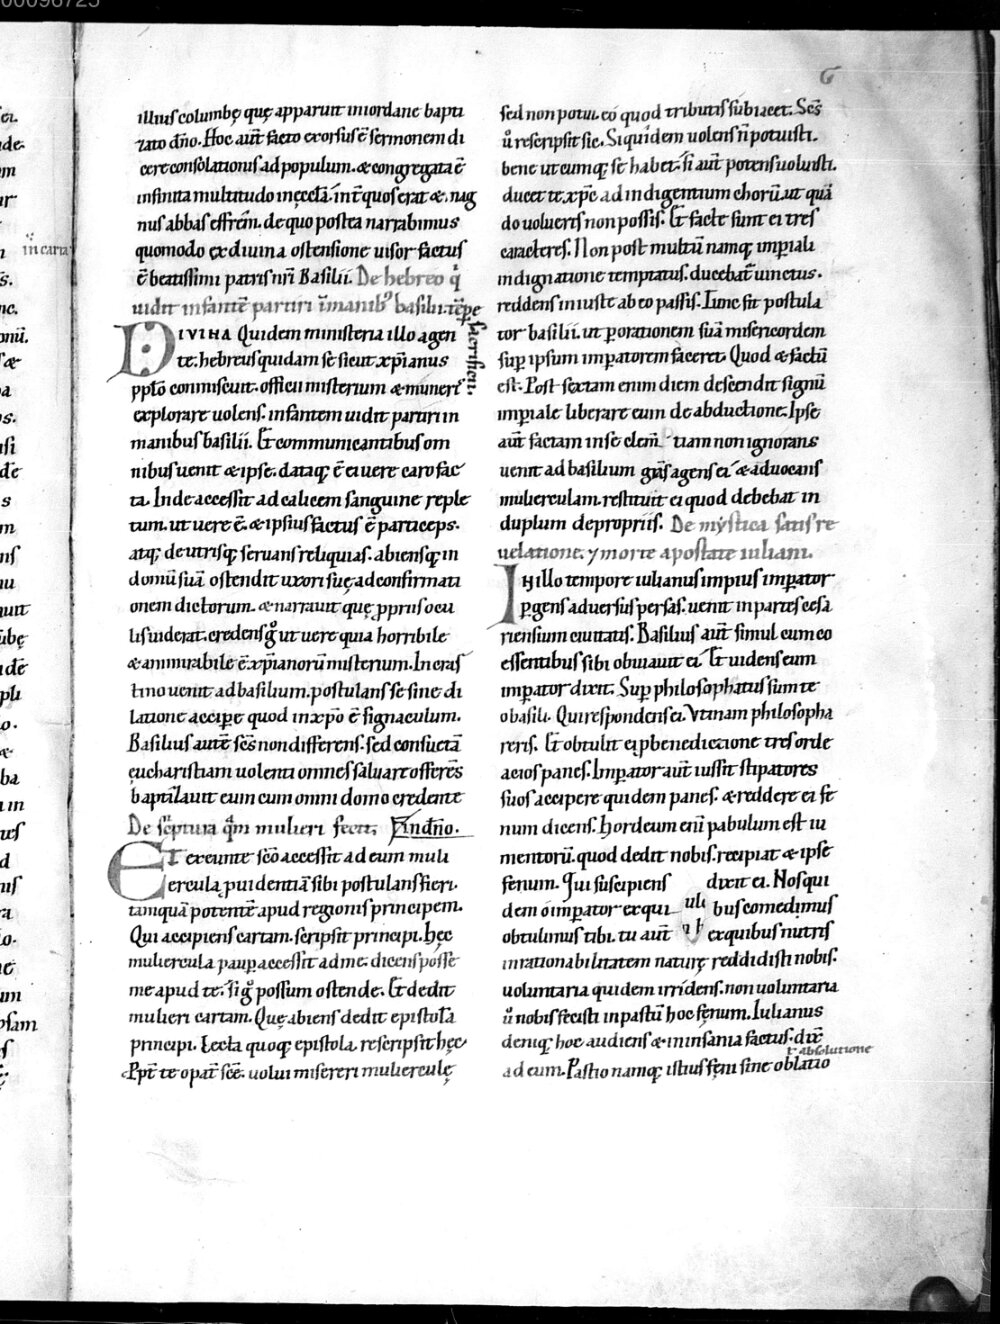 6
illius columbę quę apparuit in iordane bapti
zato dn̄o. Hoc aut̄ facto exorsus ē sermonem di
cere consolationis ad populum. & congregata ē
infinita multitudo in ęcclā. int̄ quos erat &. mag
nus abbas effrem̄. de quo postea narrabimus
quomodo ex diuina ostensione uisor factus
ē beatissimi patris nr̄i Basilii. De hebreo q̄
uidit infantē partiri in manib; basilii. tēpr̄e
sacrificii.
DIVINA Quidem ministeria illo agen
te. hebreus quidam se sicut xp̄ianus
pp̄lo conmiscuit. officii misterium & muneris
explorare uolens. infantem uidit partiri in
manibus basilii. Et communicantibus om
nibus uenit & ipse. dataq; ē ei uere caro fac
ta. Inde accessit ad calicem sanguine reple
tum. ut uere ē. & ipsius factus ē particeps.
atq; de utrisq; seruans reliquias. abiensq; in
domū suā ostendit uxori suę ad confirmati
onem dictorum. & narrauit quę ꝓpriis ocu
lis uiderat. credens g̊ ut uere quia horribile
& ammirabile ē xp̄ianorū misterium. In cras
tino uenit ad basilium. postulans se sine di
latione accipe quod in xp̄o ē signaculum.
Basilius autē sc̄s non differens. sed consuetā
eucharistiam uolenti omnes saluare offerēs
baptizauit eum cum omni domo credente
De sc̄ptura q̄m mulieri fecit, in dn̄o.
ET exeunte sc̄o accessit ad eum muli
ercula, puidentiā sibi postulans fieri.
tamquā potentē apud regionis principem.
Qui accipiens cartam. scripsit principi. hęc
muliercula paupaccessit ad me. dicens posse
me apud te. sig̊ possum ostende. Et dedit
mulieri cartam. Quę abiens dedit epistolā
principi. Lecta quoq; epistola. rescripsit hęc
Ppt̄ te opat̄ sc̄e. uolui misereri mulierculę
sed non potui. eó quod tributis subiacet. Sc̄s
ū rescripsit sic. Siquidem uolens n̄ potuisti.
bene utcumq; se habet. si aut̄ potens uoluisti.
ducet te xp̄c ad indigentium chorū. ut quā
do uolueris non possis. Et facte sunt ei tres
caracteres. Non post multū namq; impiali
indignatione temptatus. ducebat̄ uinctus.
reddens iniuste ab eo passis. Tunc fit postula
tor basilii. ut p orationem suā misericordem
sup ipsum impatorem faceret. Quod & factū
est. Post sextam enim diem descendit signū
impiale liberare eum de abductione. Ipse
aut̄ factam in se clem tiam non ignorans
uenit ad basilium grās agens ei & aduocans
mulierculam. restituit ei quod debebat in
duplum de propriis. De mystica satis re
uelatione. 7 morte apostate iuliani.
IN illo tempore iulianus impius impator
pgens aduersus persas. uenit in partes cesa
riensium ciuitatis. Basilius aut̄ simul cum eo
essentibus sibi obuiauit ei Et uidens eum
impator dixit. Sup philosophatus sum te
o basili. Qui respondens ei. Vtinam philosopha
reris. Et obtulit ei p benedictione tres orde
acios panes. Impator aut̄ iussit stipatores
suos accipere quidem panes. & reddere ei fe
num dicens. Hordeum eni pabulum est iu
mentorū. quod dedit nobis. recipiat & ipse
fenum. Qui suscipiens dixit ei. Nos qui
dem ó impator ex qui bus comedimus
obtulimus tibi. tu aut̄ ex quibus nutris
inrationabilitatem naturę reddidisti nobis.
uoluntaria quidem irridens. non uoluntaria
ū nobis fecisti in pastū hoc fęnum. Iulianus
deniq; hoc audiens & in insania factus. dix̄
ł absolutione
ad eum. Pastio namq; istius fęni sine oblatio